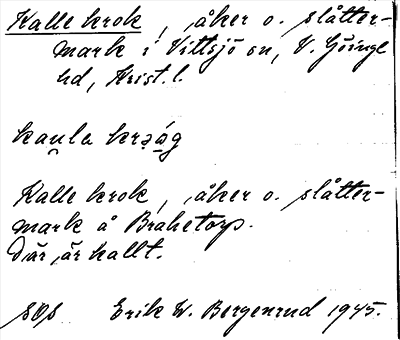 Kalle krok, åker o. slåtter-
mark i Vittsjö sn, V. Göinge
hd, Krist. l.
kau̯la krǝǻg
Kalle krok, åker o. slåtter-
mark å Brahetorp.
Där är kallt.
SOS Erik W. Bergenrud 1945.